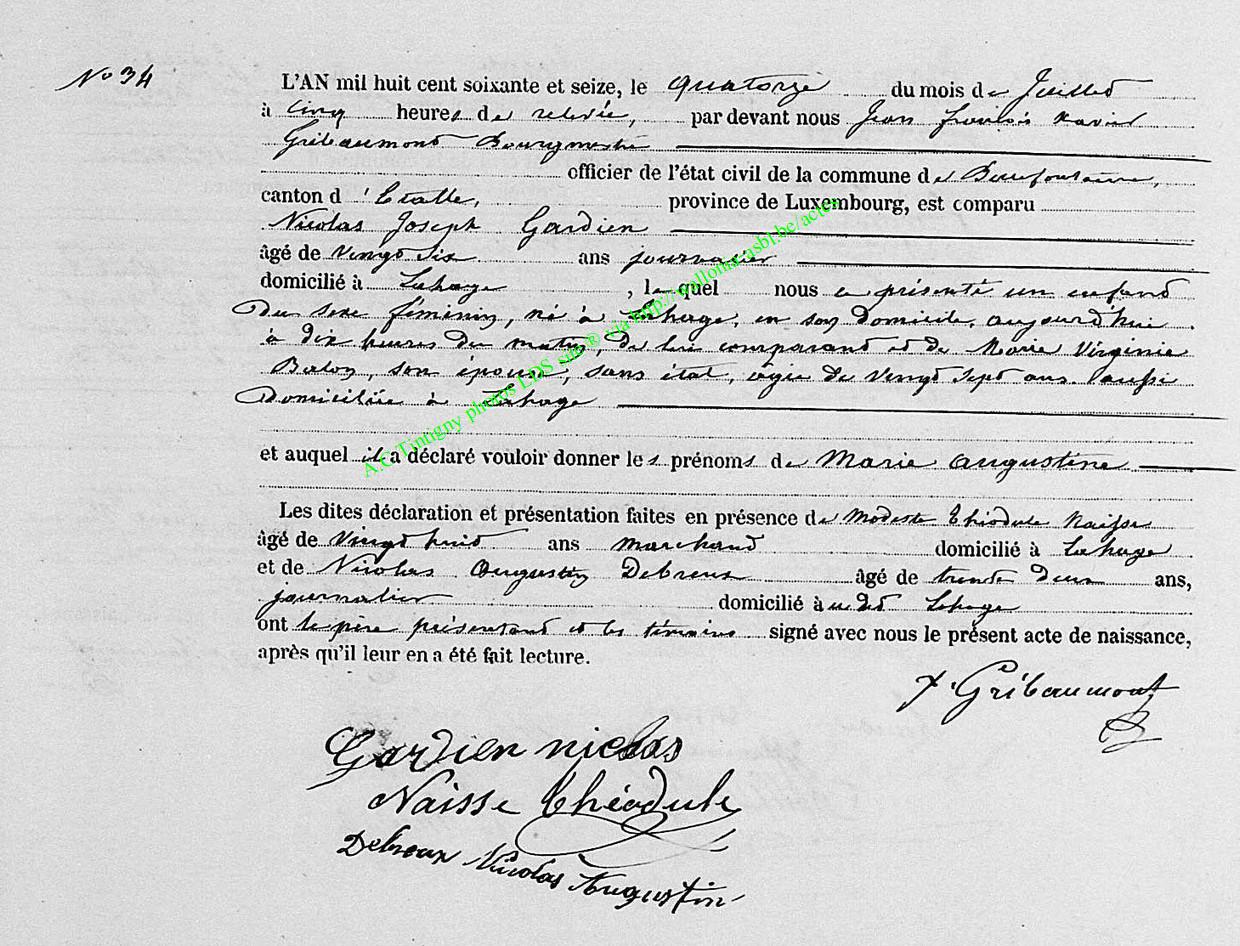 No 34
L'AN mil huit cent soixante et seize, le quatorze du mois de Juillet
à cinq heures de relevée, par devant nous Jean françois xavier
Gribaumont Bourgmestre
officier de l'état civil de la commune de Bellefontaine,
canton d'Etalle, province de Luxembourg, est comparu
Nicolas Joseph Gardien
âgé de vingt six ans journalier
domicilié à Lahage, lequel nous a présenté un enfant
du sexe féminin, né à Lahage, en son domicile, aujourd'hui
à dix heures du matin, de lui comparant et de Marie Virginie
son épouse, sans état, âgée de vingt sept ans aussi
domiciliée à Lahage
et auquel il a déclaré vouloir donner les prénoms de Marie augustine
Les dites déclaration et présentation faites en présence de Modeste Théodule Naisse
âgé de vingt huit ans marchand domicilié à Lahage
et de Nicolas Augustin Debreux âgé de trente deux ans,
journalier domicilié à udit Lahage
ont le père présentant et les témoins signé avec nous le présent acte de naissance,
après qu'il leur en a été fait lecture.
x. Gribaumont
Gardien nicolas
Naisse théodule
Debreux Nicolas Augustin
A.C Tintigny photos LDS sur ® via http://wallonia-asbl.be/actes